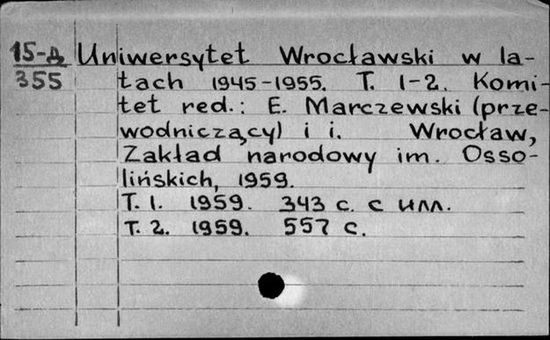 15-Д Uniwersytet Wrocławski w la-
355 tach 1945-1955. T. 1-2. Komi-
tet red.: E. Marczewski (prze-
wodniczący) i i. Wrocław,
Zakład narodowy im. Osso-
lińskich, 1959.
T. 1. 1959. 343 с. с илл.
T. 2. 1959. 557 с.